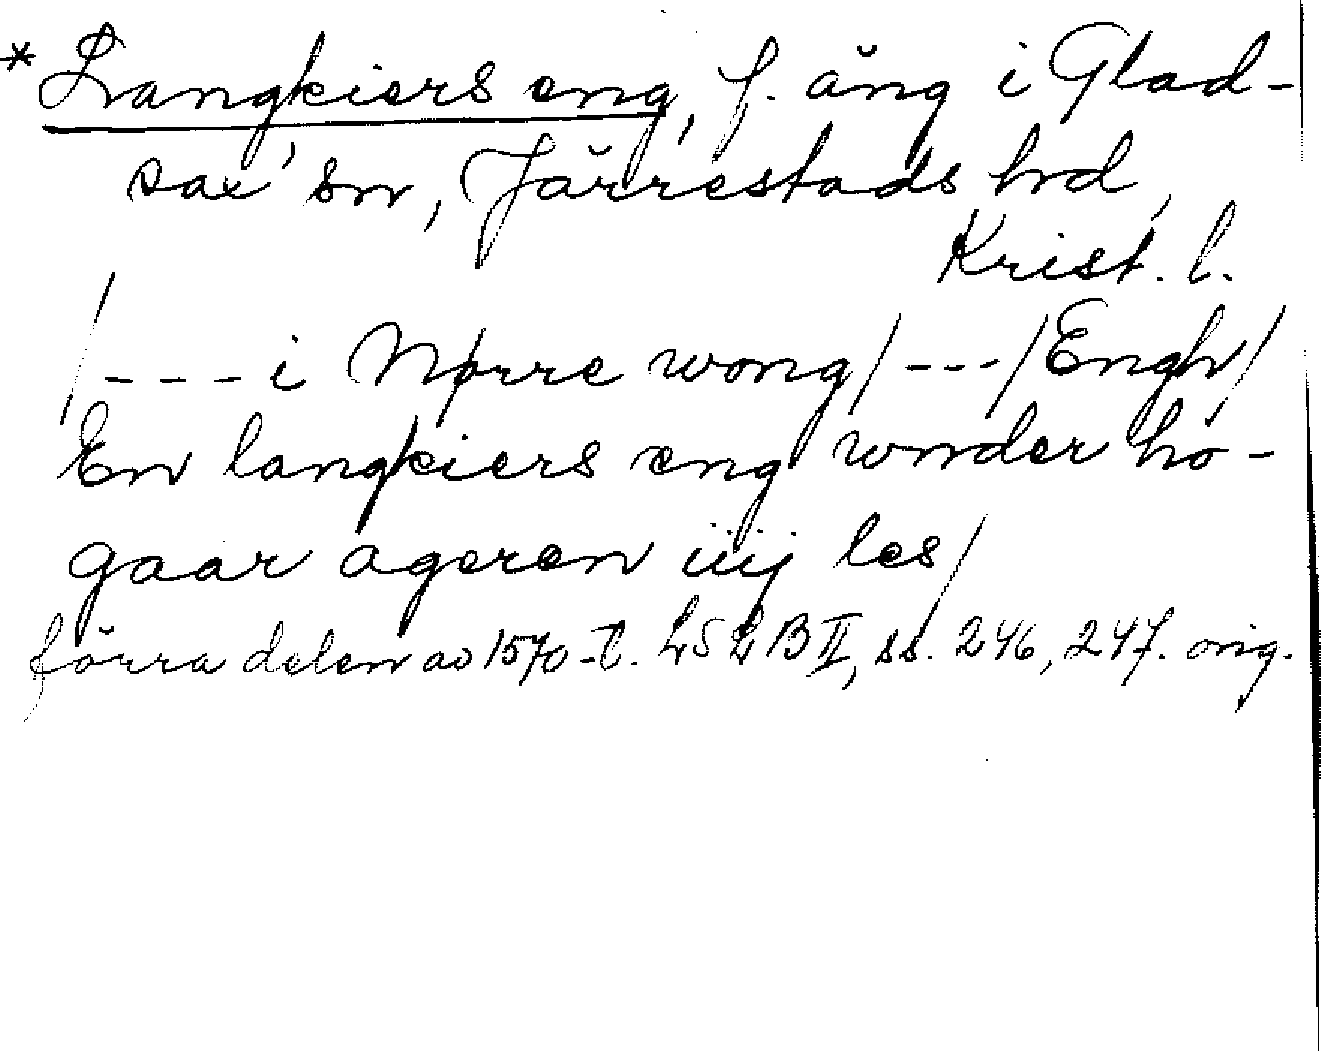 * Langkiers eng, f. äng i Glad-
sax' sn, Järrestads hd,
Krist. l.
/---i Nørre wong/---/Engh/
En langkiers eng wnder ho-
gaar ageren iiij les/
förra delen av 1570-t. LSLB II, ss. 246, 247. orig.